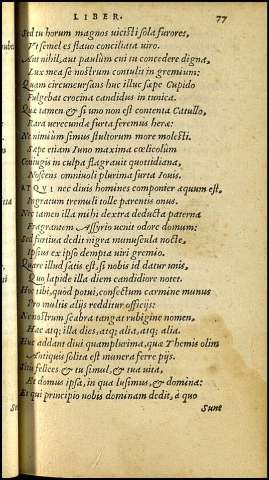 LIBER. 77
Sed tu horum magnos uicisti sola furores,
Vt semel es flauo conciliata uiro.
Aut nihil, aut paulum cui tu concedere digna,
Lux mea se nostrum contulit in gremium:
Quam circunsursans huc illuc sæpe Cupido
Fulgebat crocina candidus in tunica.
Quæ tamen & si uno non est contenta Catullo,
Rara uerecunda furta feremus heræ:
Ne nimium simus stultorum more molesti.
Sæpe etiam Iuno maxima cœlicolûm
Coniugis in culpa flagrauit quottidiana,
Noscens omniuoli plurima furta Iouis.
ATQVI nec diuis homines componier æquum est,
Ingratum tremuli tolle parentis onus.
Nec tamen illa mihi dextra deducta paterna
Fragrantem Assyrio uenit odore domum:
Sed furtiua dedit nigra munuscula nocte,
Ipsius ex ipso dempta uiri gremio.
Quare illud satis est, si nobis id datur unis,
Quo lapide illa diem candidiore notet.
Hoc tibi, quod potui, confectum carmine munus
Pro multis alijs redditur officijs:
Ne nostrum scabra tangat rubigine nomen,
Hæc atq; illa dies, atq; alia, atq; alia.
Huc addant diui quamplurima, quæ Themis olim
Antiquis solita est munera ferre pijs.
Situ felices & tu simul, & tua uita,
Et domus ipsa, in qua lusimus, & domina:
Et qui principio nobis dominam dedit, à quo
Sunt